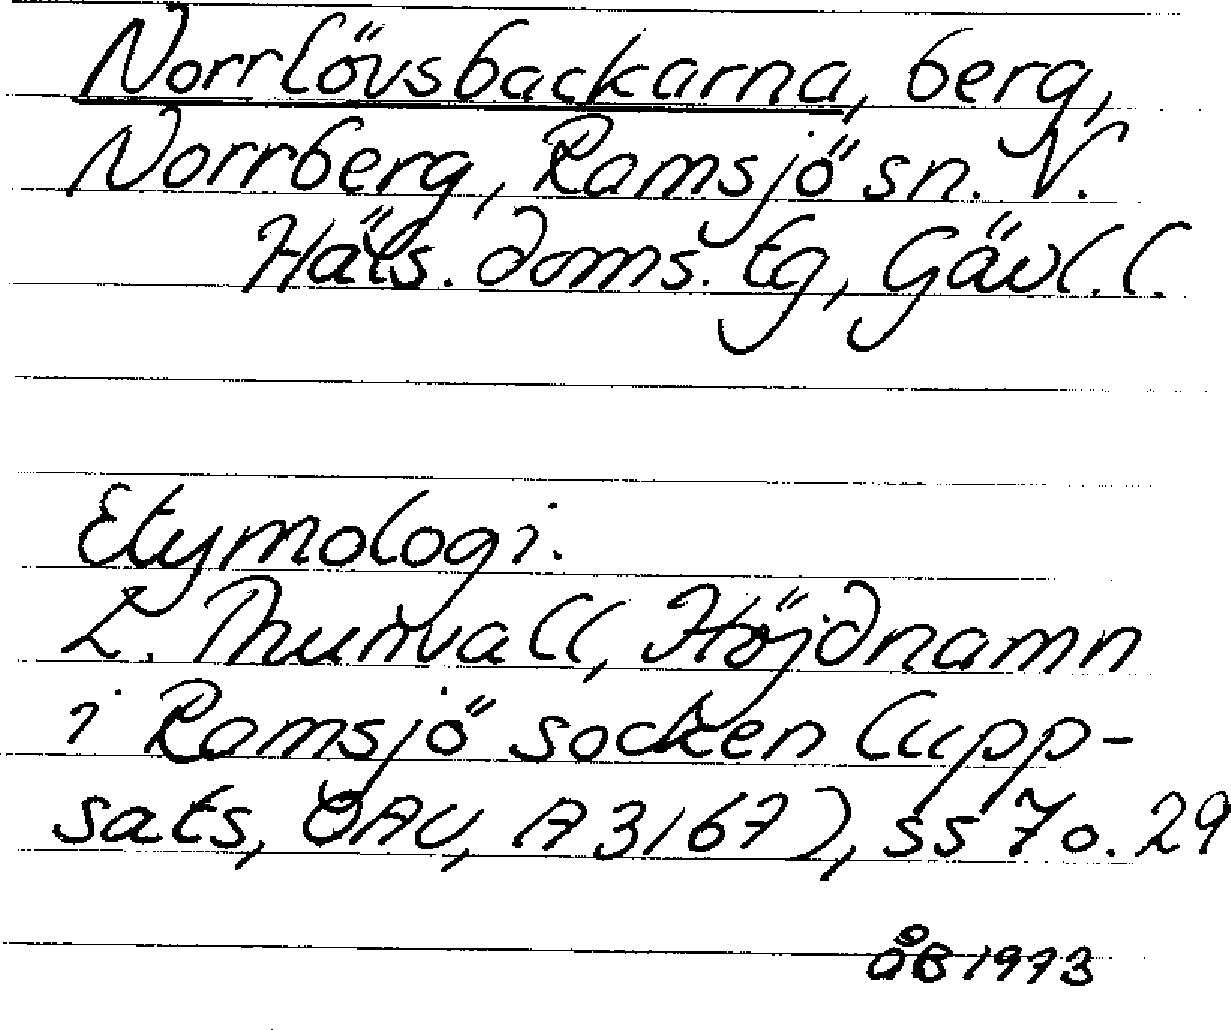 Norrlövsbackarna, berg,
Norrberg, Ramsjö sn. V.
Häls. doms. tg, Gävl. l.
Etymologi.
L. Thunvall, Höjdnamn
i Ramsjö socken (upp-
sats, OAU, A 3167), ss 7 o. 29
åB 1973